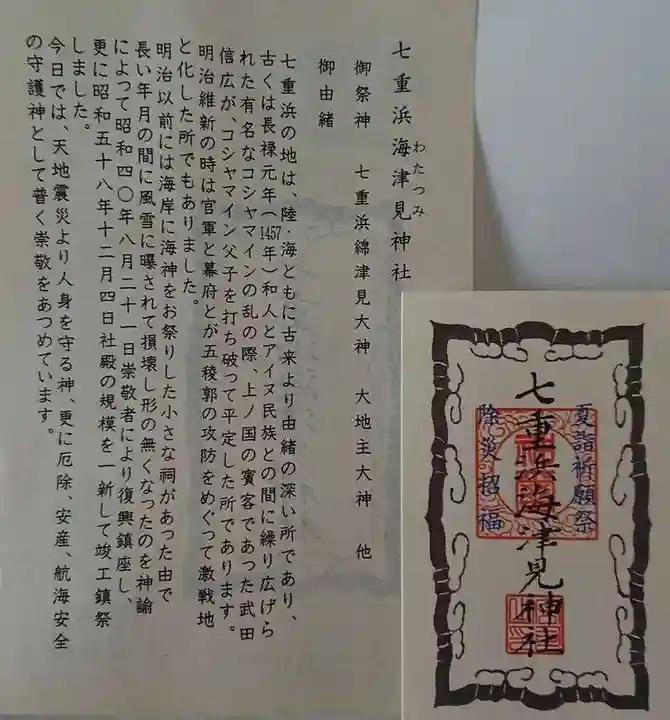 七重浜海津見神社
わたつみ
御祭神 七重浜綿津見大神 大地主大神 他
御由緒
七重浜の地は、陸・海ともに古来より由緒の深い所であり、
古くは長禄元年(1457年)和人とアイヌ民族との間に繰り広げら
れた有名なコシャマインの乱の際、上ノ国の賓客であつた武田
信広が、コシャマイン父子を打ち破つて平定した所であります。
明治維新の時は官軍と幕府とが五稜郭の攻防をめぐって激戦地
と化した所でもありました。
明治以前には海岸に海神をお祭りした小さな祠があった由で
長い年月の間に風雪に曝されて損壊し形の無くなったのを神諭
によつて昭和四〇年八月二十一日崇敬者により復興鎮座し、
更に昭和五十八年十二月四日社殿の規模を一新して竣工鎮祭
しました。
今日では、天地震災より人身を守る神、更に厄除、安産、航海安全
の守護神として普く崇敬をあつめています。
夏詣祈願祭
七重浜海津見神社
除災招福